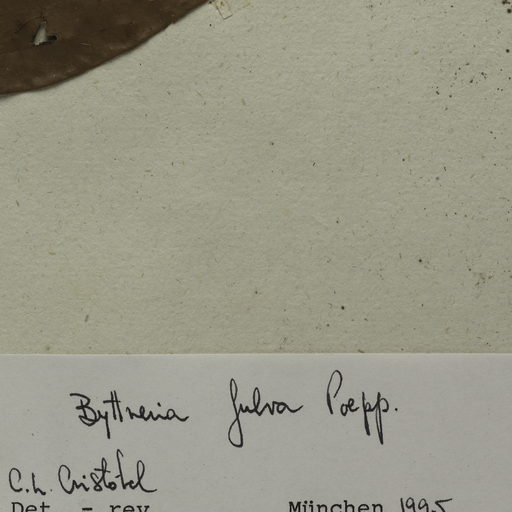 Byttneria fulva Poepp.
C.L. Cristóbal
Det. - rev. München 1995